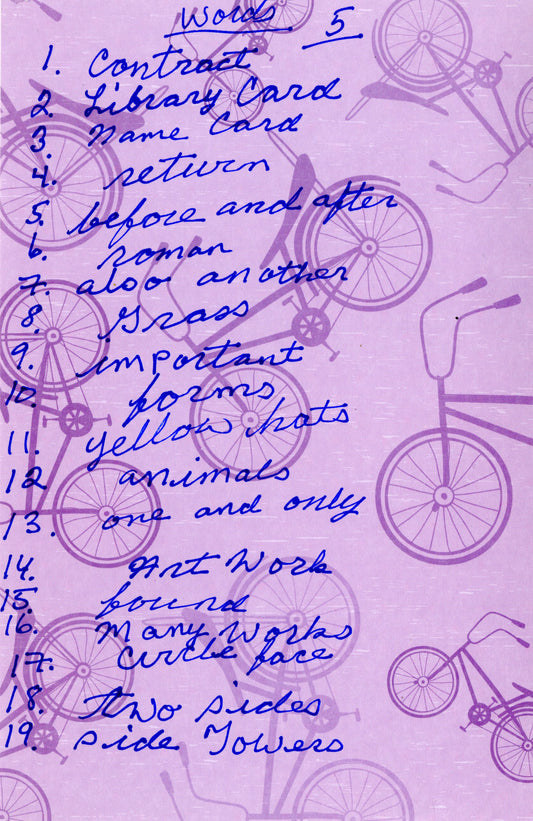 Words 5
1. Contract
2. Library Card
3. Name Card
4. return
5. before and after
6. roman
7. also another
8. Grass
9. important
10. forms
11. yellow hats
12 animals
13. one and only
14. Art Work
15. found
16. Many Works
17. Circle face
18. Two sides
19. Side Towers